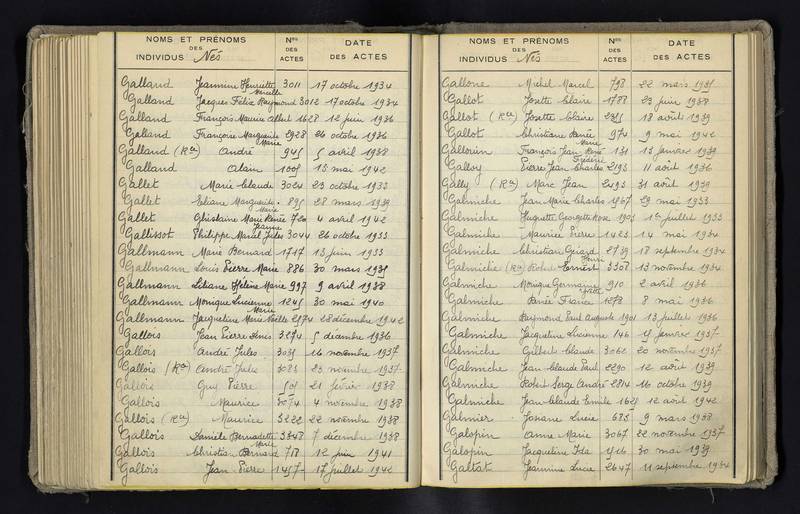 NOMS ET PRÉNOMS Nos DATE
DES DES
INDIVIDUS Nés ACTES DES ACTES
Galland Jeannine Henriette Marcelle 3011 17 octobre 1934
Galland Jacques Félix Raymond 3012 17 octobre 1934
Galland François Maurice Albert 1628 12 juin 1936
Galland Françoise Marguerite Marie 2928 26 octobre 1936
Galland (Rce) André 945 5 avril 1938
Galland Alain 1005 15 mai 1942
Gallet Marie Claude 3024 23 octobre 1933
Gallet Eliane Marguerite 895 28 mars 1939
Gallet Ghislaine Marie Renée Jeanne 720 4 avril 1942
Gallissot Philippe Marcel Jules 3044 26 octobre 1933
Gallmann Marie Bernard 1717 13 juin 1933
Gallmann Louis Pierre Marie 886 30 mars 1935
Gallmann Liliane Hélène Marie 997 9 avril 1938
Gallmann Monique Lucienne Marie 1245 30 mai 1940
Gallmann Jacqueline Marie 2574 28 décembre 1942
Gallois Jean Pierre 3274 5 décembre 1936
Gallois André Jules 3035 16 novembre 1937
Gallois (Rce) André Jules 3083 23 novembre 1937
Gallois Guy Pierre 505 21 février 1938
Gallois Maurice 3074 4 novembre 1938
Gallois (Rce) Maurice 3222 22 novembre 1938
Gallois Danièle Bernadette Marie 3348 7 décembre 1938
Gallois Christian Bernard 718 12 juin 1941
Gallois Jean Pierre 1457 17 juillet 1942
NOMS ET PRÉNOMS Nos DATE
DES DES
INDIVIDUS Nés ACTES DES ACTES
Gallone Michel Marcel 798 22 mars 1935
Gallot Josette Claire 1788 23 juin 1938
Gallot (Rce) Josette Claire 2315 18 août 1939
Gallot Christiane Renée Marie 974 9 mai 1942
Gallotin François Jean René Frédéric 131 13 janvier 1939
Galloy Pierre Jean Charles 2193 11 août 1936
Gally (Rce) Marc Jean 2493 31 août 1939
Galmiche Jean Marie Charles 1567 29 mai 1933
Galmiche Huguette Georgette Rose 1903 1er juillet 1933
Galmiche Maurice Pierre 1423 14 mai 1934
Galmiche Christian Gérard Henri 2739 18 septembre 1934
Galmiche (Rce) Robert Ernest 3308 13 novembre 1934
Galmiche Monique Germaine 910 2 avril 1936
Galmiche Renée France 1278 8 mai 1936
Galmiche Raymond Paul Auguste 1901 13 juillet 1936
Galmiche Jacqueline Lucienne 146 15 janvier 1937
Galmiche Gilbert Claude 3062 20 novembre 1937
Galmiche Jean Claude Paul 2290 12 août 1939
Galmiche Robert Serge André 2814 16 octobre 1939
Galmiche Jean Claude Emile 1625 12 août 1942
Galmier Josiane Lucie 683 9 mars 1938
Galopin Anne Marie 3067 22 novembre 1937
Galopin Jacqueline Ida 1516 30 mai 1939
Galtat Jeannine Lucie 2647 11 septembre 1934